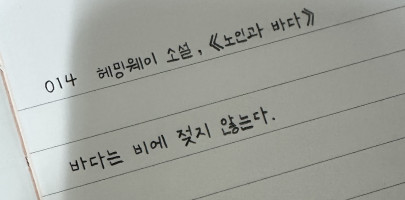 014 헤밍웨이 소설, 《노인과 바다》
바다는 비에 젖지 않는다.